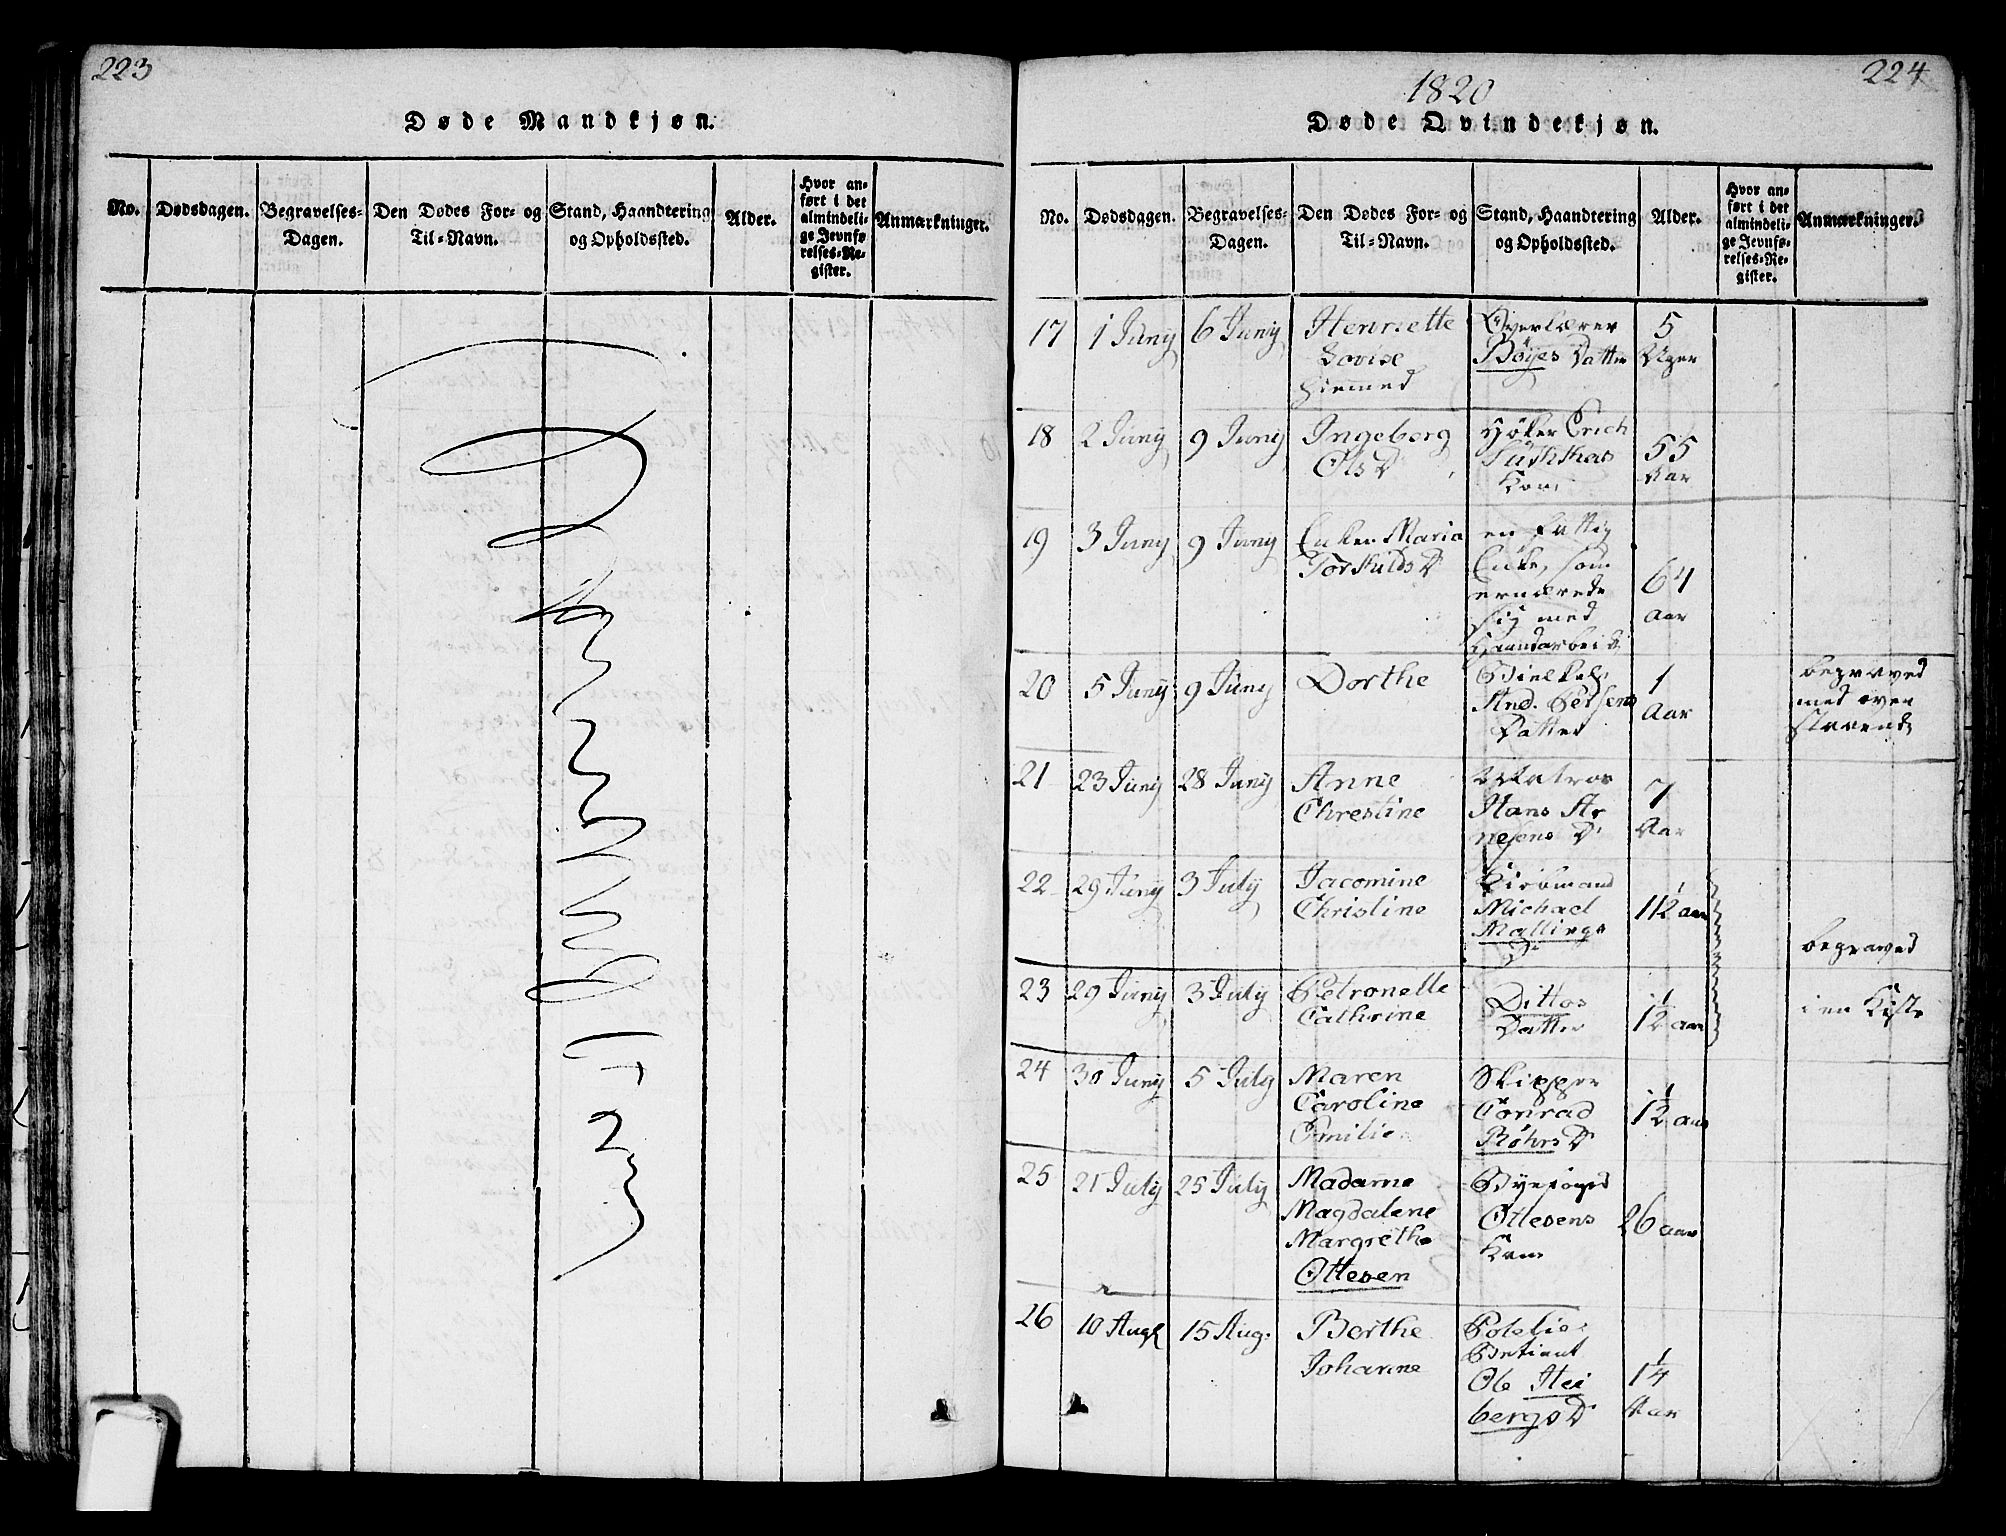 223
Døde Mandkjøn.
No.
Dødsdagen.
Begravelses-
Dagen.
Den Dødes For- og
Til-Navn.
Stand, Haandtering
og Opholdssted.
Alder.
Hvor an-
ført i det
almindeli-
ge Jevnfø-
relses-Re-
gister.
Anmærkninger.
224
1820
Døde Qvindekjøn.
No.
Dødsdagen.
Begravelses-
Dagen.
Den Dødes For- og
Til-Navn.
Stand, Haandtering
og Opholdssted.
Alder.
Hvor an-
ført i det
almindeli-
ge Jevnfø-
relses-Re-
gister.
Anmærkninger.
17 1 Juny 6 Juny Henriette
Lovise
hiemmed
Overlærer
Bøyes Datter
5
Uger
18 2 Juny 9 Juny Ingeborg
Ols D
Høker Erich
Kone
55
Aar
19 3 Juny 9 Juny Enken Maria
Torkilds D
en fattig
Enke, som
ernærede
sig med
Haandarbeide
64
Aar
20 5 Juny 9 Juny Dorthe
And. Petersens
Datter
1
Aar
begraved
med oven
staaende
21 23 Juny 28 Juny Anne
Christine
Matros
Hans Ar
nesens D
7
Aar
22 29 Juny 3 July Jacomine
Christine
Kiøbmand
Michael
Mallings
D
1 1/2 aar
23 29 Juny 3 July Petronelle
Cathrine
Dittos
Datter
1 1/2 aar
begraved
i en Kiste
24 30 Juny 5 July Maren
Caroline
Emilie
Skipper
Conrad
Røhrs D
1 1/2 aar
25 21 July 25 July Madame
Magdalene
Margrethe
Ottesen
Byefoged
Ottesens
Kone
26 aar
26 10 Aug 15 Aug. Berthe
Johanne
Politie
Betient
Ole Hei
bergs D
1 1/4
Aar